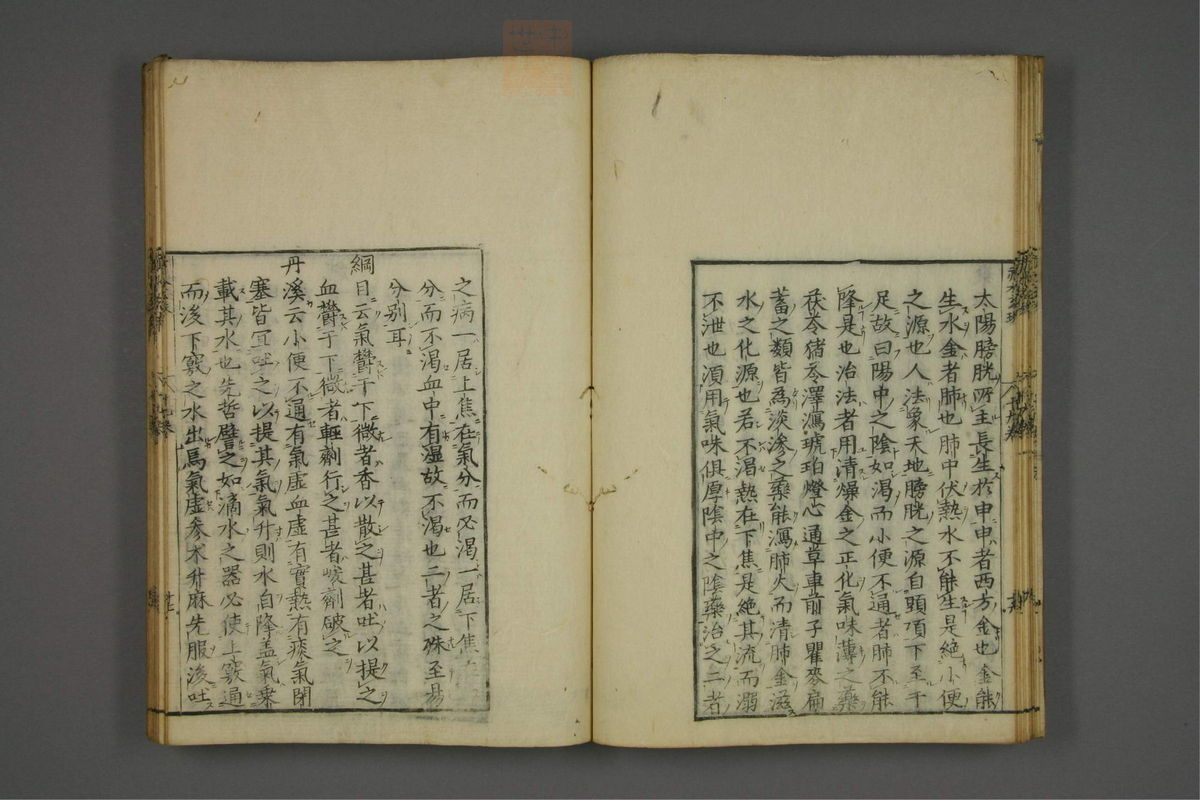 太陽膀胱所主長生於申申者西方金也金能
生水金者肺也肺中伏熱水不能生是絶小便
之源也人法象天地膀胱之源自頭項下至于
足故曰陽中之陰如渴而小便不通者肺不能
降是也治法者用清燥金之正化氣味薄之藥
茯苓猪苓澤瀉琥珀燈心通草車前子瞿麥扁
蓄之類皆為淡滲之藥能瀉肺火而清肺金滋
水之化源也若不渴熱在下焦是絶其流而溺
不泄也須用氣味俱厚陰中之陰藥治之二者
之病一居上焦在氣分而必渴一居下焦
分而不渴血中有湿故不渴也二者之殊至易
分別耳
綱目云氣欝于下微者香以散之甚者吐以提之
血欝于下微者輕劑行之甚者峻劑破之
丹溪云小便不通有氣虛血虛有實熱有痰氣閉
塞皆冝吐之以提其氣氣升則水自降盖氣乗
載其水也先哲譬之如滴水之器必使上竅通
而後下竅之水出焉氣虛參朮升麻先服後吐